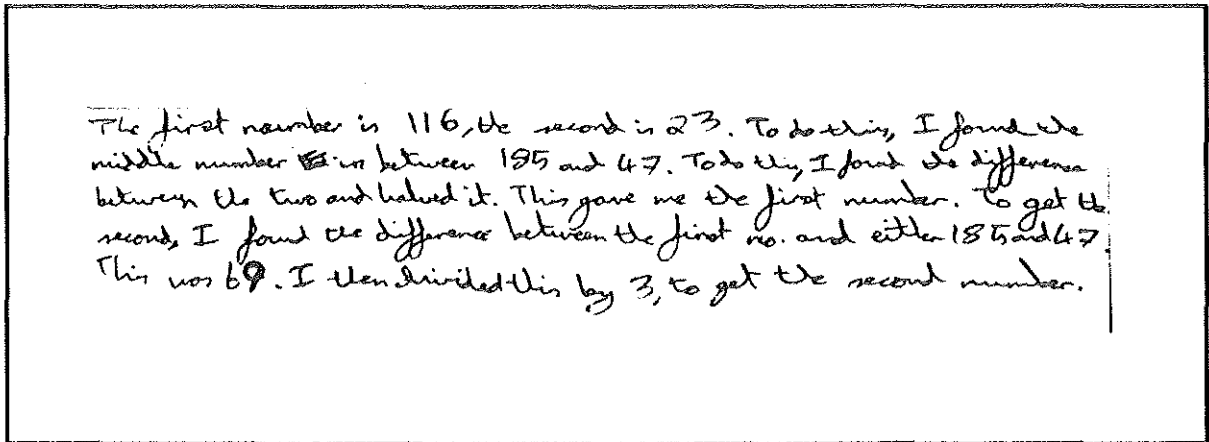 The first naumber is 116, the second is 23. To do this, I found the
middle number in between 185 and 47. To do this, I found the difference
between the two and halved it. This gave me the first number. To get the
second, I found the difference between the first no. and either 185 and 47.
This was 69. I then divided this by 3, to get the second number.